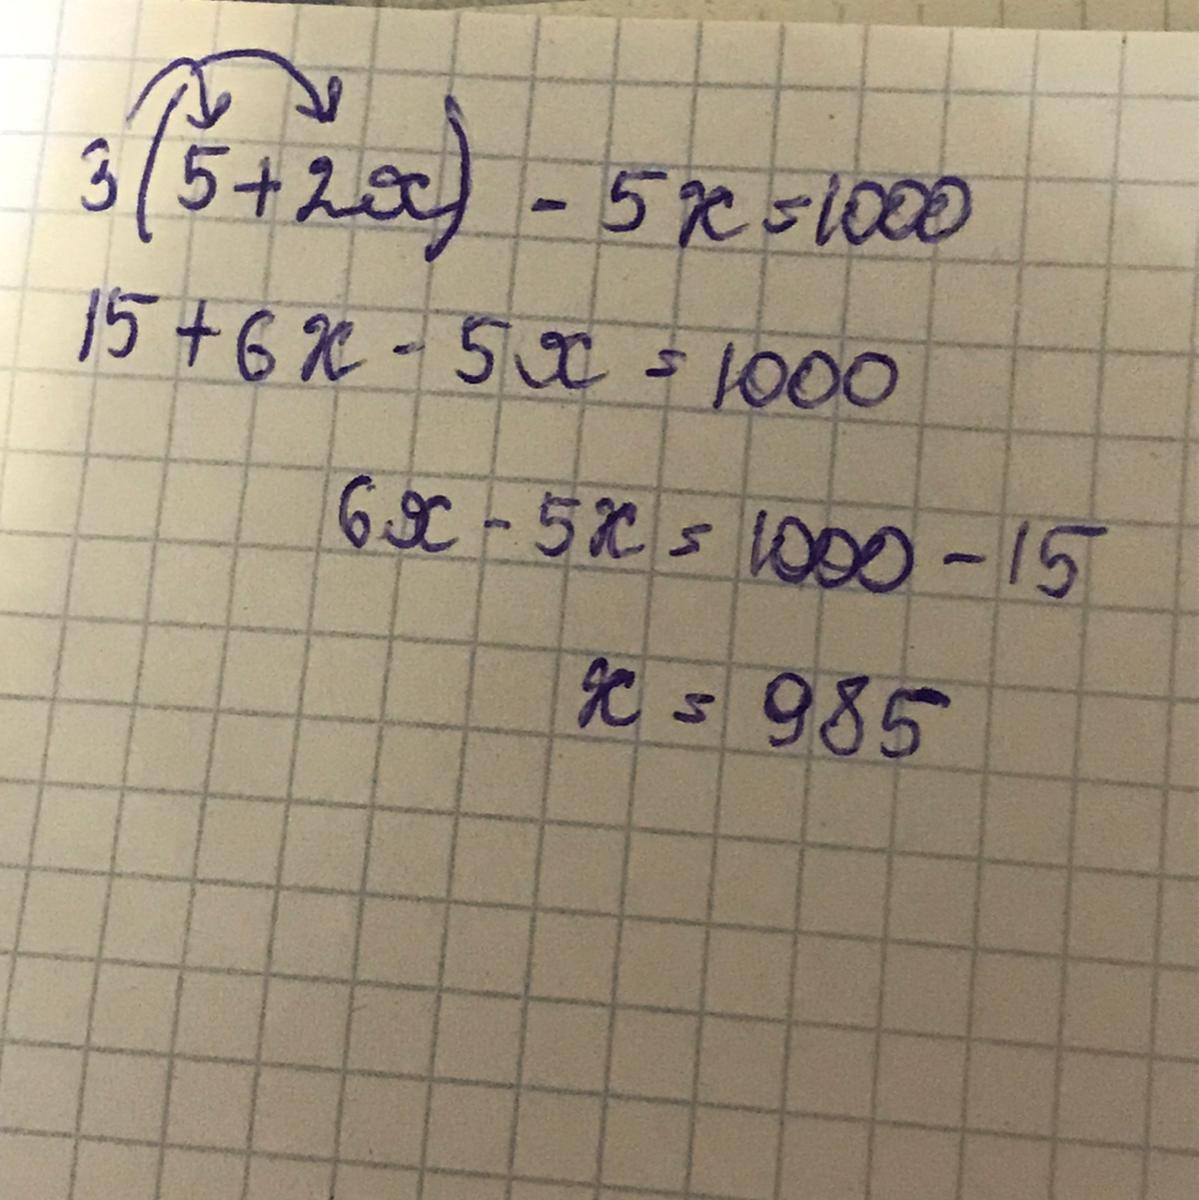 3(5+2x) - 5x = 1000
15 + 6x - 5x = 1000
6x - 5x = 1000 - 15
x = 985